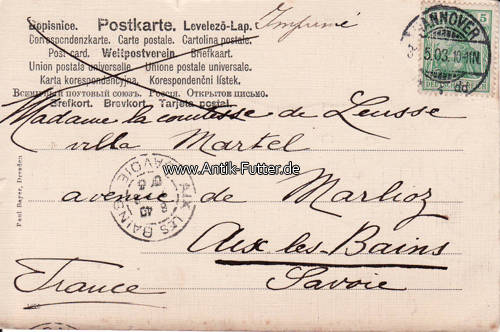 Dopisnice. Postkarte. Levelező-Lap.
Imprimé
Correspondenzkarte. Carte postale. Cartolina postale.
Post card. Weltpostverein. Briefkaart.
Union postala universelle. Unione postale universale.
Karta korespondencyjna. Korespondenční lístek.
Всемірный почтовый союзъ. Россія. Открытое письмо.
Brefkort. Brevkort. Tarjeta postal.
5
HANNOVER
5.03. 10-11N
Madame la comtesse de Leusse
villa Martel
www.Antik-Futter.de
avenue de Marlioz
AIX LES BAINS
SAVOIE
Aix les Bains
France
Savoie
Paul Bayer, Dresden